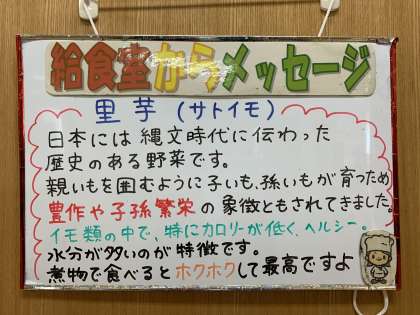 給食室からメッセージ
里芋（サトイモ）
日本には縄文時代に伝わった
歴史のある野菜です。
親いもを囲むように子いも、孫いもが育つため
豊作や子孫繁栄の象徴ともされてきました。
イモ類の中で、特にカロリーが低く、ヘルシー。
水分が多いのが特徴です。
煮物で食べるとホクホクして最高ですよ